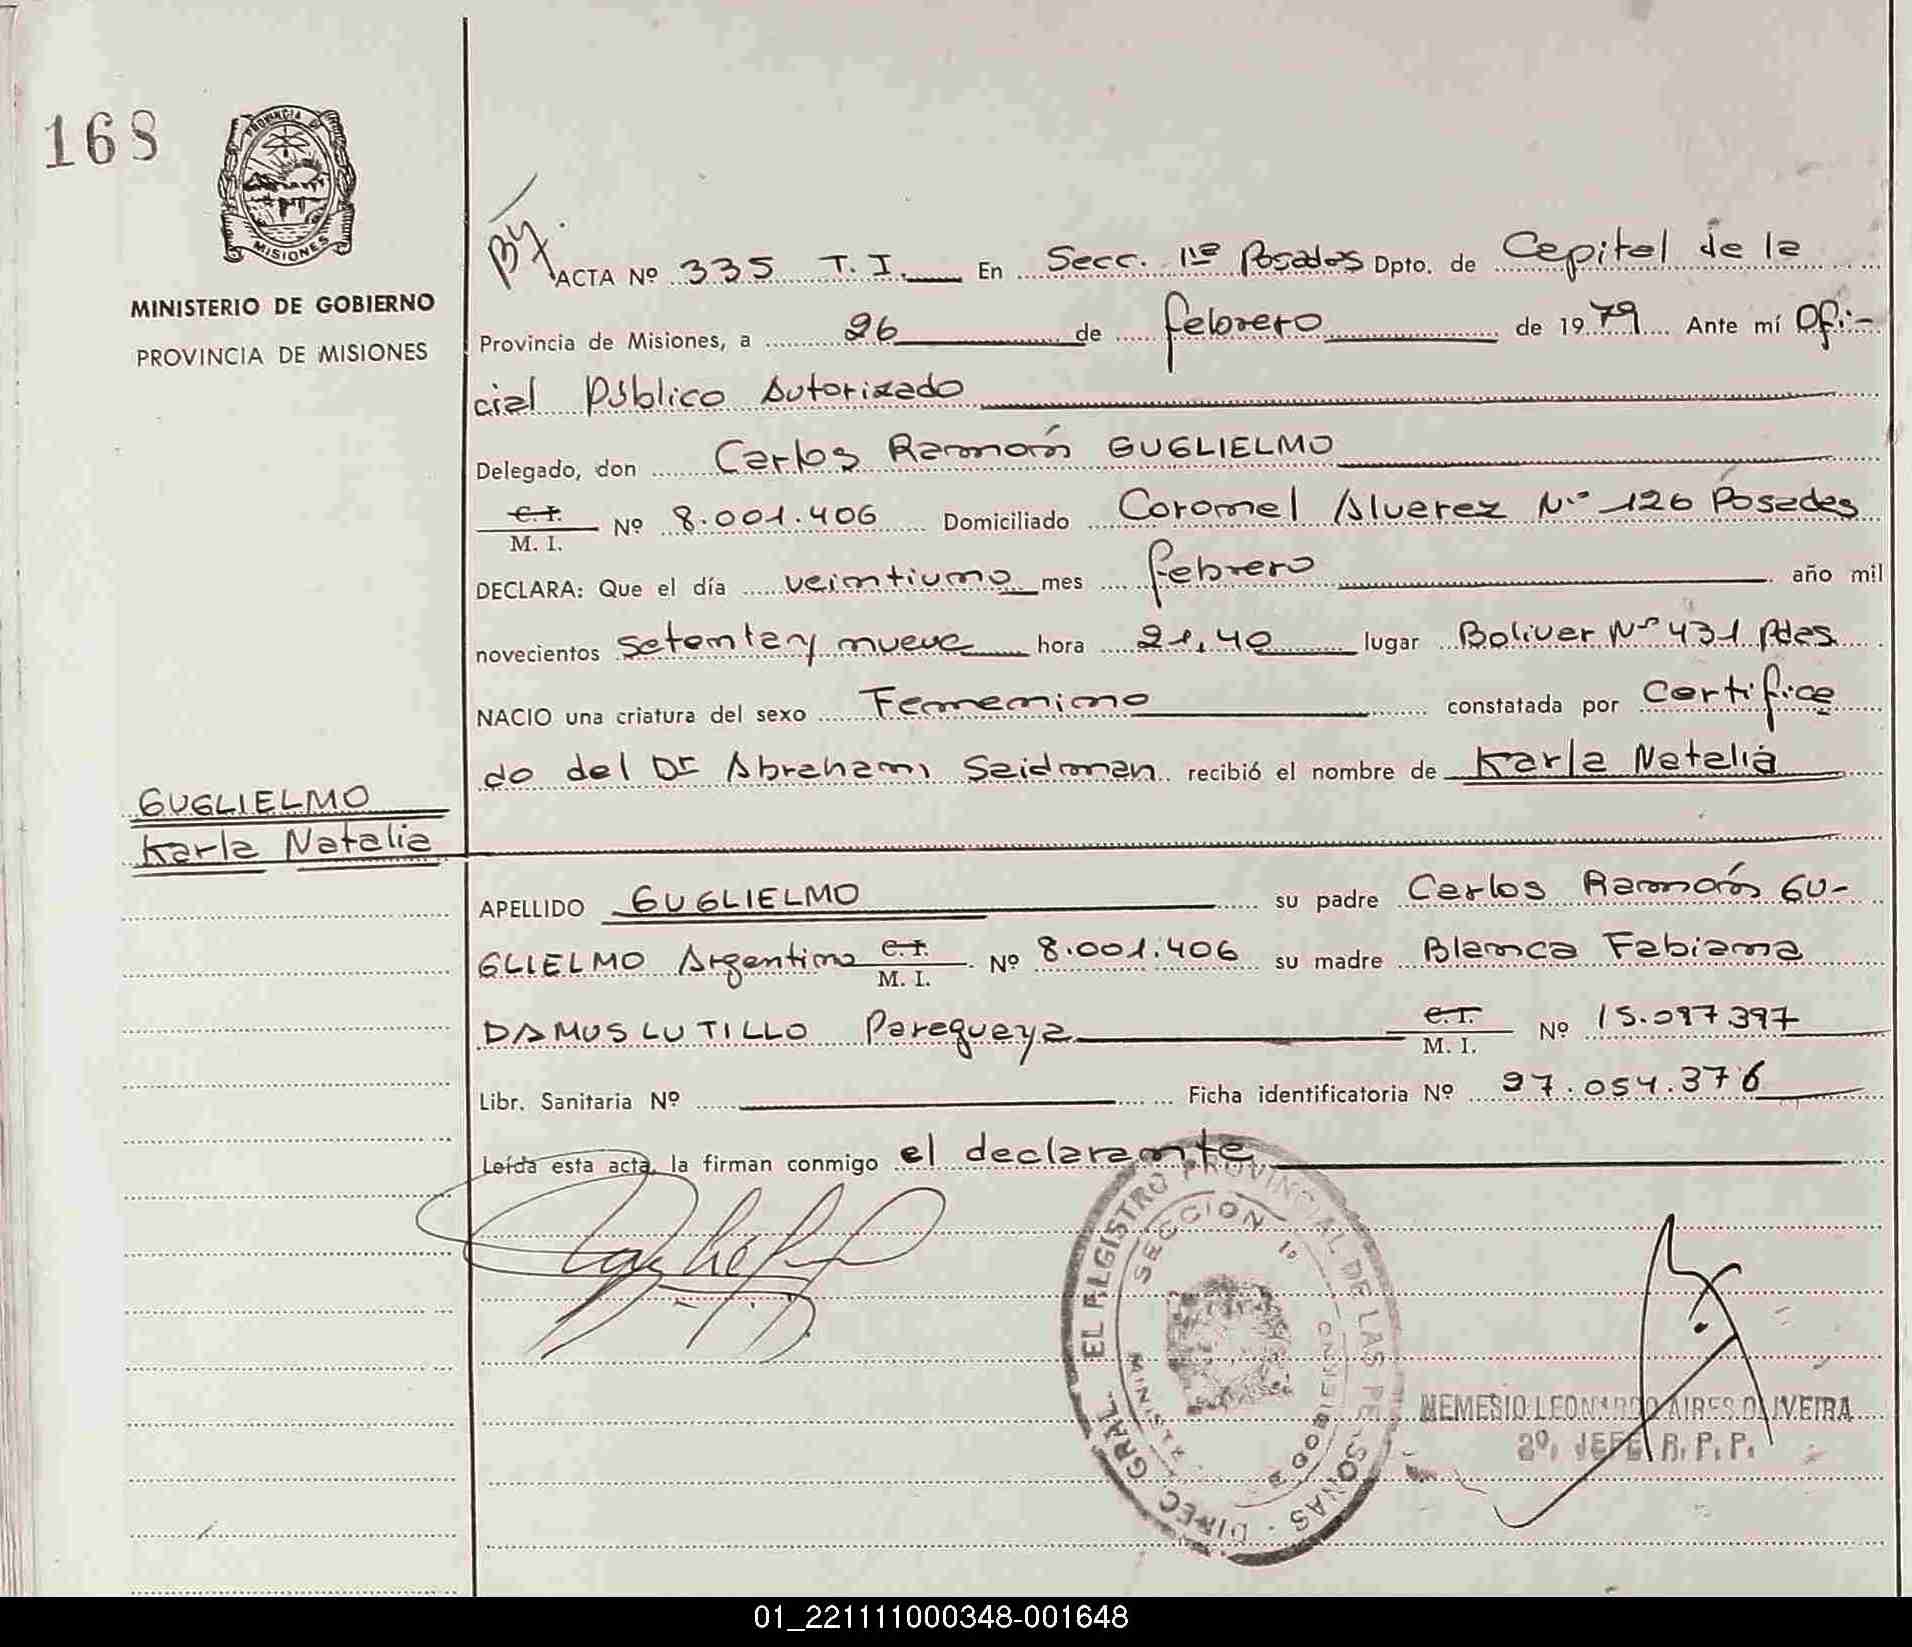 168
PROVINCIA DE
MISIONES
MINISTERIO DE GOBIERNO
PROVINCIA DE MISIONES
ACTA Nº 335 T. I. En Secc. 1ra Posadas Dpto. de Capital de la
Provincia de Misiones, a 26 de febrero de 1979 Ante mí Ofi-
cial Público Autorizado
Delegado, don Carlos Ramón GUGLIELMO
C. I.
M. I. Nº 8.001.406 Domiciliado Coronel Alvarez Nº 126 Posadas
DECLARA: Que el día veintiuno mes febrero año mil
novecientos setenta y nueve hora 21,40 lugar Bolivar Nº 431 Pdas.
NACIO una criatura del sexo Femenino constatada por Certifica
do del Dr Abraham Saidman recibió el nombre de Karla Natalia
GUGLIELMO
Karla Natalia
APELLIDO GUGLIELMO su padre Carlos Ramón GU-
GLIELMO Argentino C. I. M. I. Nº 8.001.406 su madre Blanca Fabiana
DAMUS LUTILLO Paraguaya C. I. M. I. Nº 15.097.397
Libr. Sanitaria Nº Ficha identificatoria Nº 27.054.376
Leída esta acta, la firman conmigo el declarante
DIREC. GRAL. EL REGISTRO PROVINCIAL DE LAS PERSONAS
SECCION 1º
NEMESIO LEONARDO AIRES OLIVEIRA
2º. JEFE R. P. P.
01_221111000348-001648